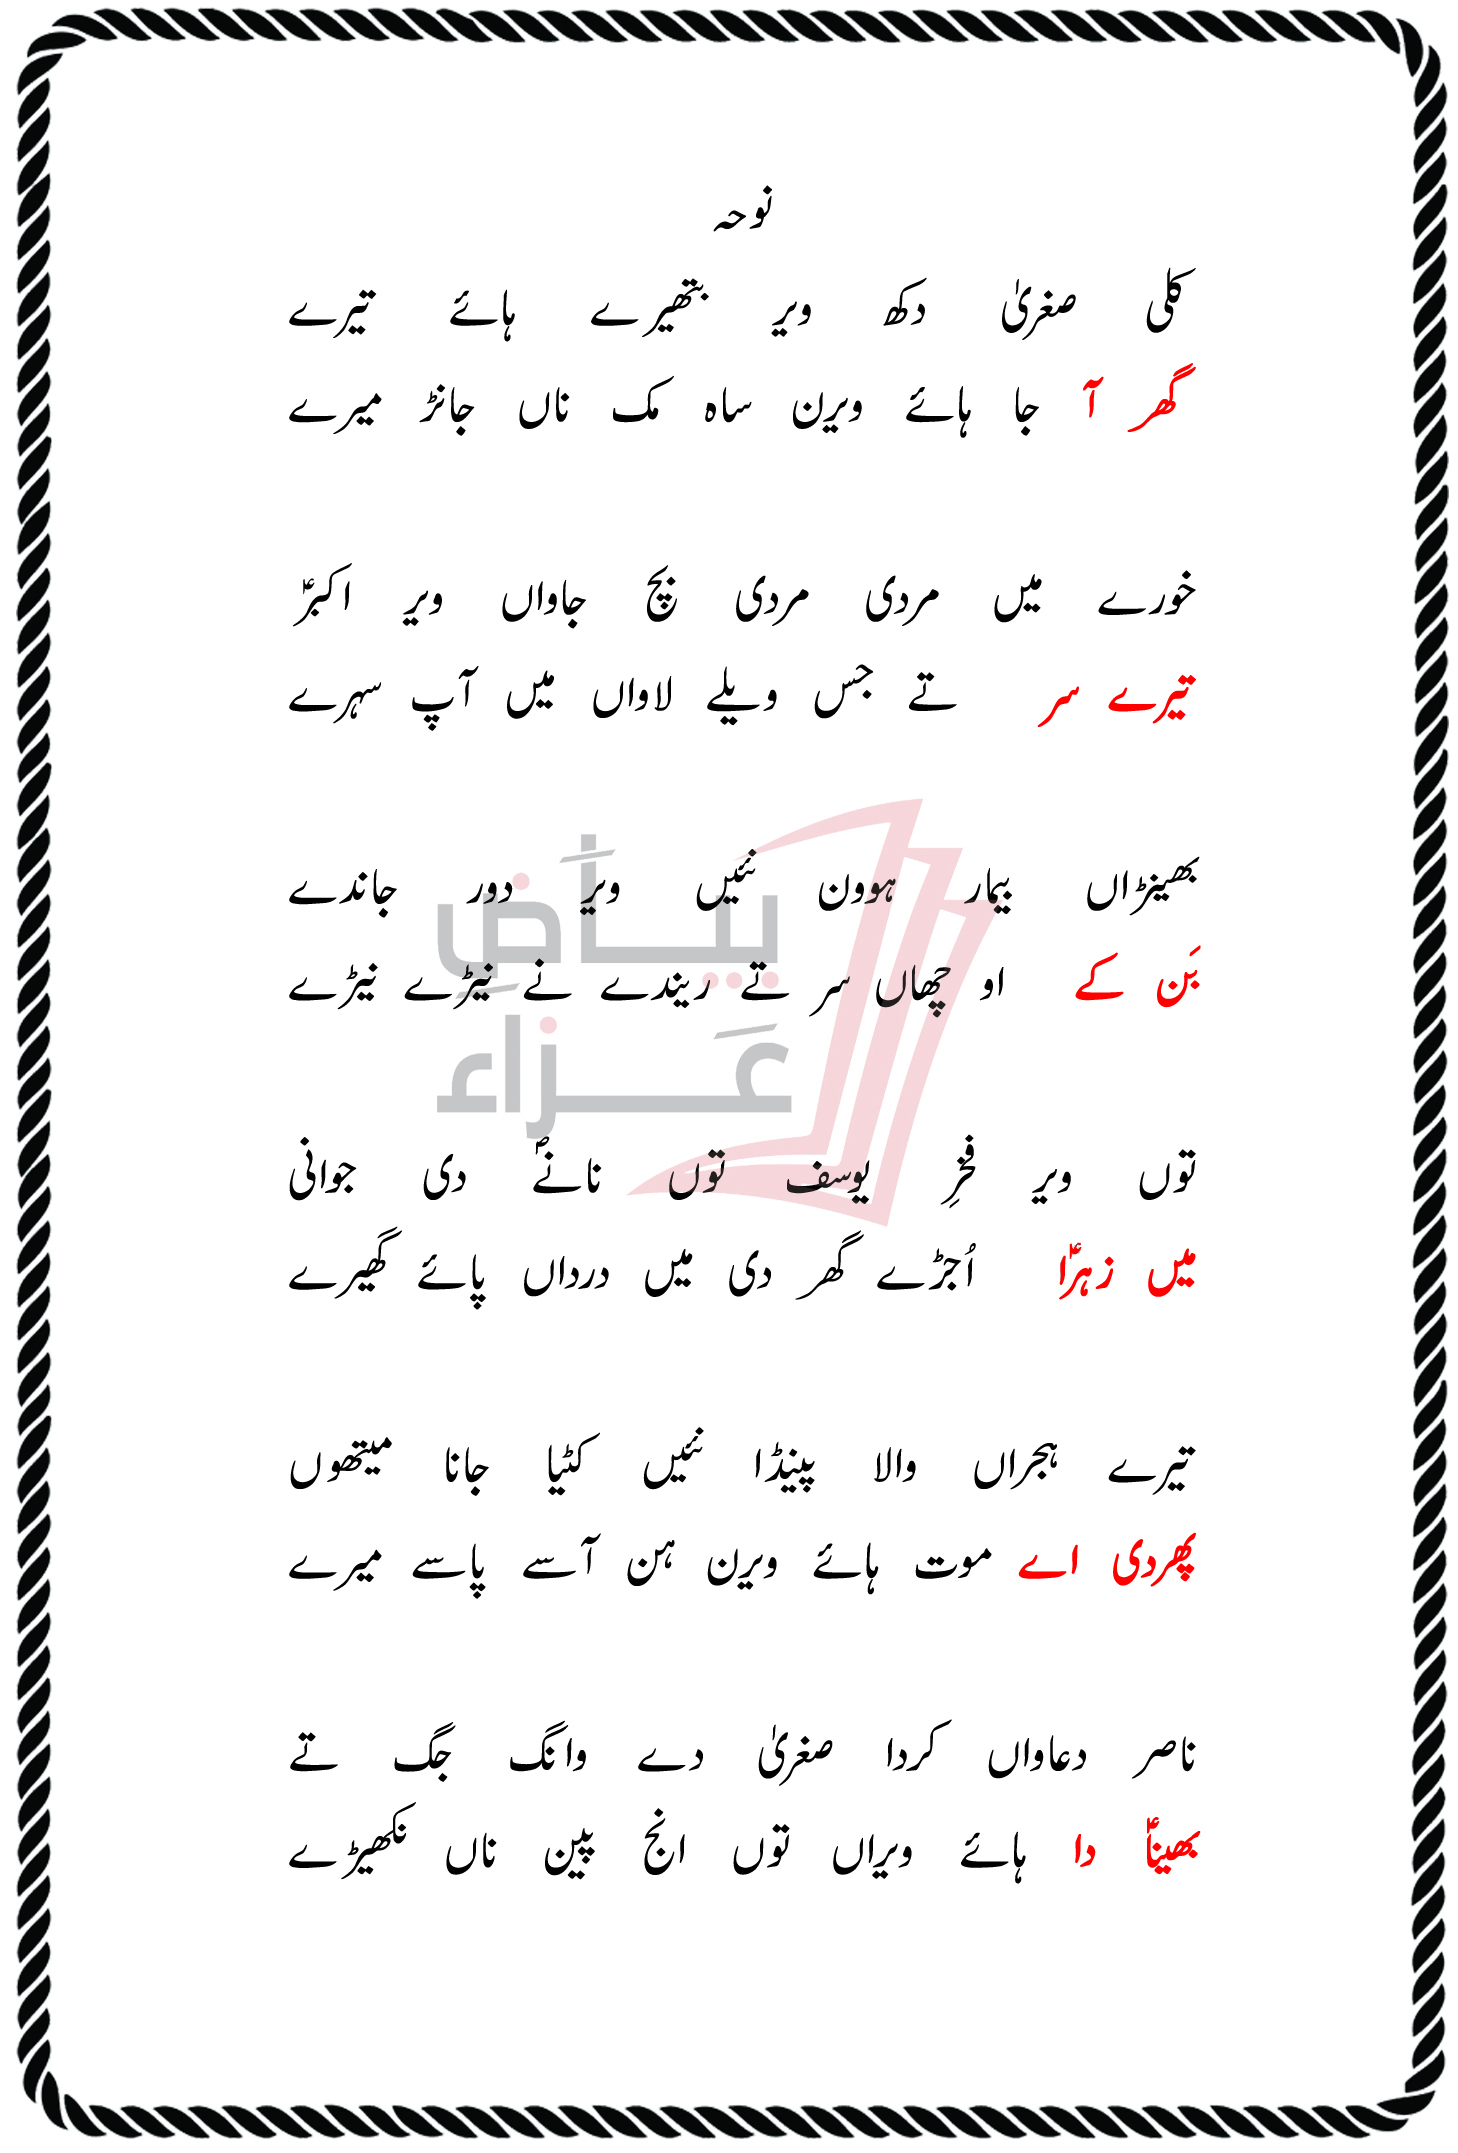 نوحہ
کلی صغریٰ دکھ ویر بتھیرے ہائے تیرے
گھر آ جا ہائے ویرن ساہ مک ناں جانڑ میرے
خورے میں مردی مردی بچ جاواں ویر اکبرؑ
تیرے سر تے جس ویلے لاواں میں آپ سہرے
بھینڑاں بیمار ہوون نئیں ویر دور جاندے
بَن کے او چھاں سر تے ریندے نے نیڑے نیڑے
بیاضِ
عَزاء
توں ویر فخرِ یوسف توں نانےؐ دی جوانی
میں زہراؑ اُجڑے گھر دی میں درداں پائے گھیرے
تیرے ہجراں والا پینڈا نئیں کٹیا جانا میتھوں
پھردی اے موت ہائے ویرن ہن آسے پاسے میرے
ناصر دعاواں کردا صغریٰ دے وانگ جگ تے
بھیناؑ دا ہائے ویراں توں انج پین ناں نکھیڑے